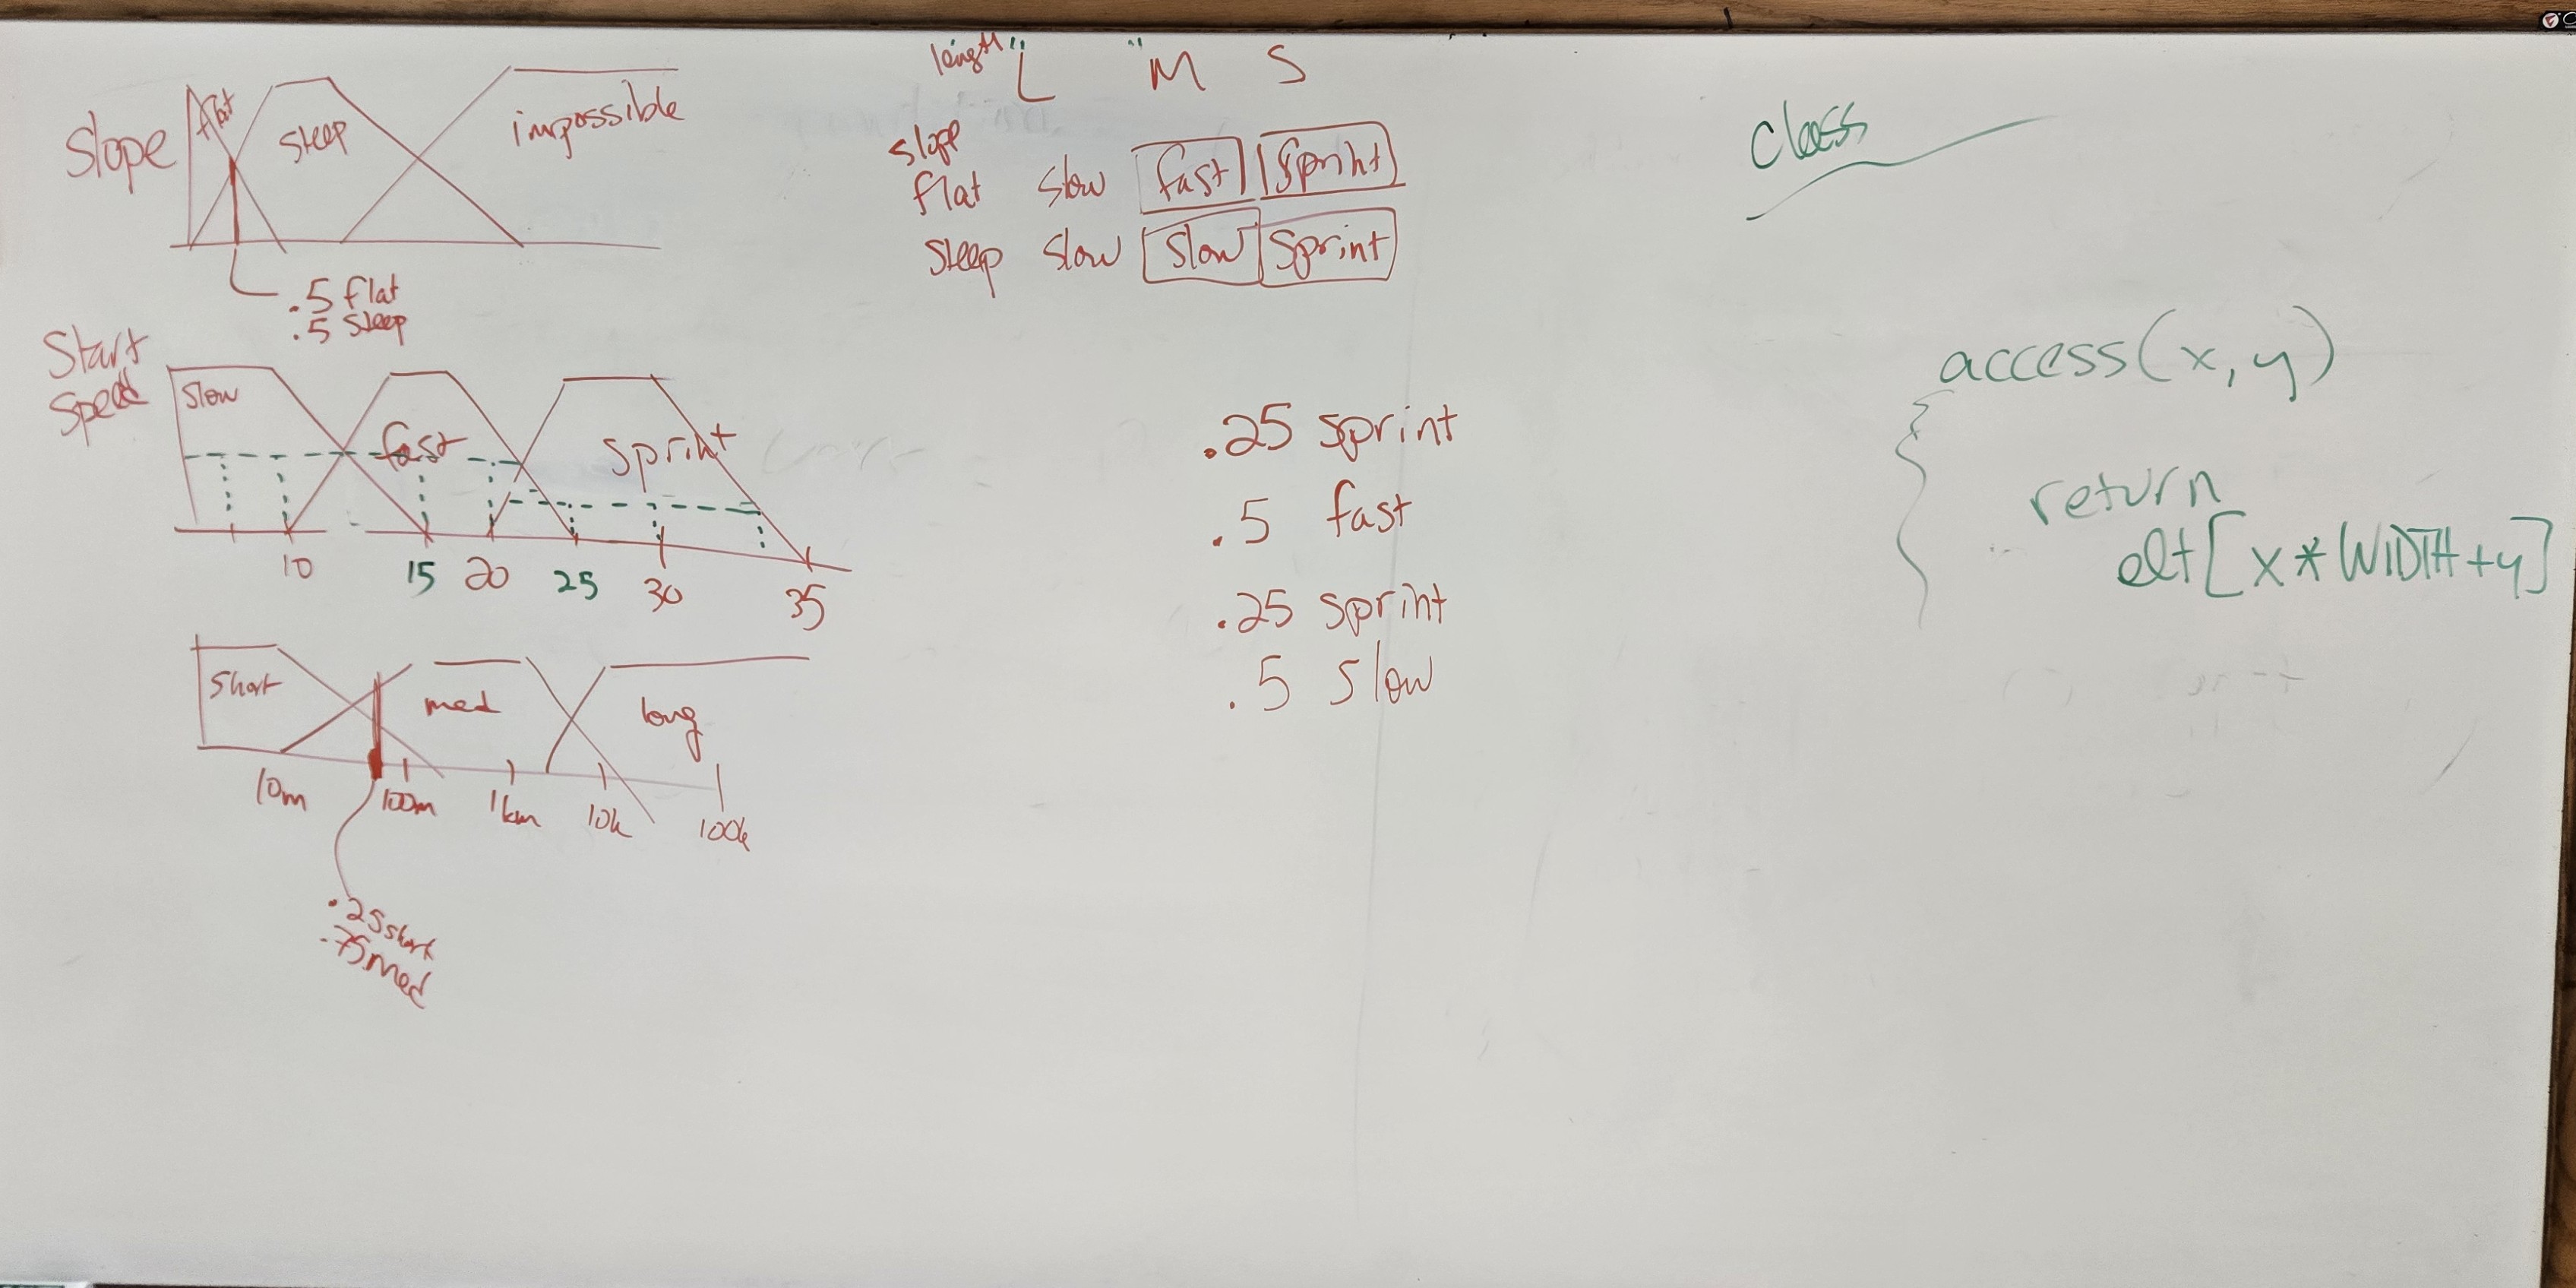 Slope
flat
steep
impossible
.5 flat
.5 steep
Start
Speed
slow
fast
sprint
10 15 20 25 30 35
short
med
long
10m 100m 1km 10k 100k
.25 short
.75 med
length "L" M S
slope
flat slow fast sprint
steep slow slow sprint
.25 sprint
.5 fast
.25 sprint
.5 slow
class
access(x,y)
{
return
elt[x*WIDTH+y]